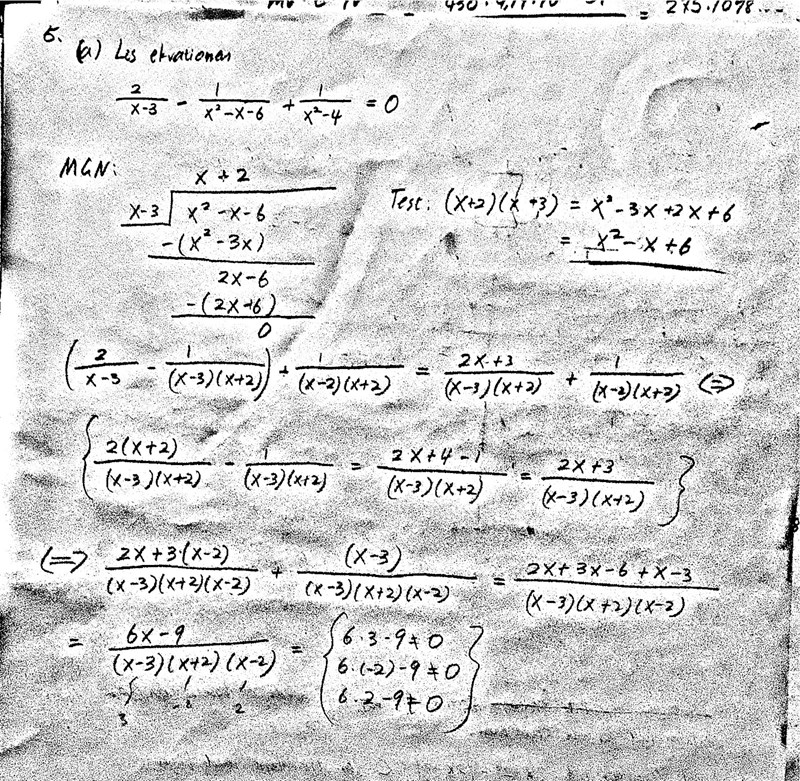 = 275.1078...
5.
(a) Lös ekvationen
2/(x-3) - 1/(x²-x-6) + 1/(x²-4) = 0
MGN:
x + 2
x-3 x² - x - 6
-(x² - 3x)
2x - 6
-(2x+6)
0
Test: (x+2)(x+3) = x² - 3x + 2x + 6
= x² - x + 6
(2/(x-3) - 1/((x-3)(x+2))) + 1/((x-2)(x+2)) = (2x+3)/((x-3)(x+2)) + 1/((x-2)(x+2)) (=>
{2(x+2)/((x-3)(x+2)) - 1/((x-3)(x+2)) = (2x+4-1)/((x-3)(x+2)) = (2x+3)/((x-3)(x+2))}
(=> (2x+3·(x-2))/((x-3)(x+2)(x-2)) + (x-3)/((x-3)(x+2)(x-2)) = (2x+3x-6+x-3)/((x-3)(x+2)(x-2))
= (6x-9)/((x-3)(x+2)(x-2)) = {6·3-9≠0
6·(-2)-9≠0
6·2-9≠0}
3 -2 2